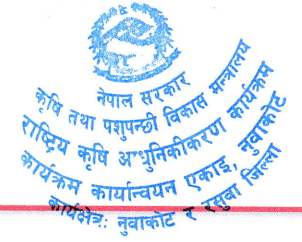 नेपाल सरकार
कृषि तथा पशुपन्छी विकास मन्त्रालय
राष्ट्रिय कृषि आधुनिकीकरण कार्यक्रम
कार्यक्रम कार्यान्वयन एकाइ, नुवाकोट
कार्यक्षेत्र: नुवाकोट र रसुवा जिल्ला